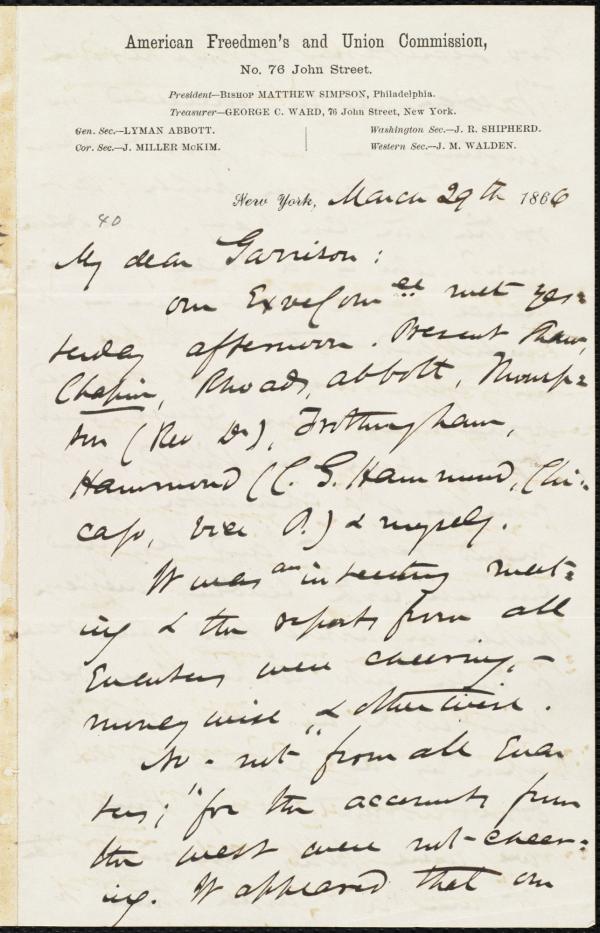 American Freedmen's and Union Commission,
No. 76 John Street.
President—BISHOP MATTHEW SIMPSON, Philadelphia.
Treasurer—GEORGE C. WARD, 76 John Street, New York.
Gen. Sec.—LYMAN ABBOTT.
Washington Sec.—J. R. SHIPHERD.
Cor. Sec.—J. MILLER McKIM.
Western Sec.—J. M. WALDEN.
New York, March 29th 1866
40
My dear Garrison:
Our Exve Comee met yes=
terday afternoon. Present Shaw,
Chapin, Rhoads, Abbott, Thomp=
son (Rev Dr), Frothingham,
Hammond (C. G. Hammond, Chi-
cago, Vice P.) & myself.
It was an interesting meet=
ing & the reports from all
quarters were cheering,-
moneywise & otherwise.
No - not "from all quar
ters;" for the accounts from
the west were not cheer=
ing. It appeared that our